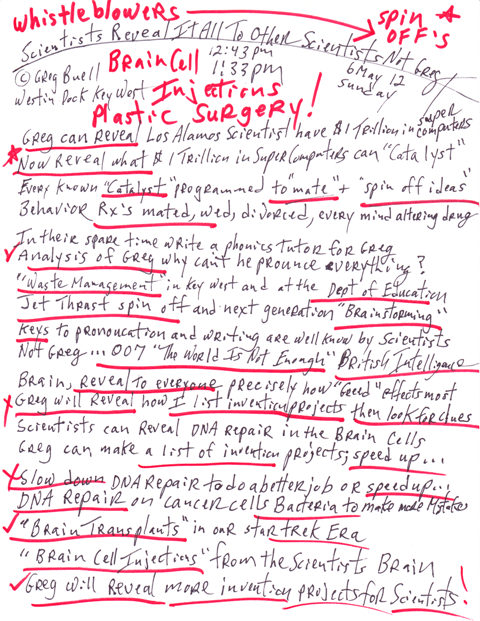 Whistleblowers
SPIN OFF'S
Scientists Reveal It All To Other Scientists Not Greg
12:43pm
1:33pm
6 May 12
Sunday
© Greg Buell
Westin Dock Key West
Brain Cell
Injections
Plastic Surgery!
Greg can Reveal Los Alamos Scientist have $1 Trillion in super computers
Now Reveal what $1 Trillion in SuperComputers can "Catalyst"
Every known "Catalyst" programmed to "mate" + "spin off ideas"
Behavior Rx's mated, wed, divorced, every mind altering drug
In their spare time write a phonics tutor for Greg
Analysis of Greg why can't he prounce everything?
"Waste Management" in Key West and at the Dept of Education
Jet Thrast spin off and next generation "Brainstorming"
Keys to pronoucation and writing are well know by Scientists
Not Greg... 007 "The World Is Not Enough" British Intelligence
Brain, Reveal To everyone precisely how "Greed" effects most
Greg will Reveal how I list invention projects then look for clues
Scientists can Reveal DNA Repair in the Brain Cells
Greg can make a list of invention projects; speed up...
Slow down DNA Repair to do a better job or speed up...
DNA Repair on cancer cells Bacteria to make more Mistakes
"Brain Transplants" in our star trek Era
"Brain Cell Injections" from the Scientists Brain
Greg will Reveal more invention projects for Scientists!